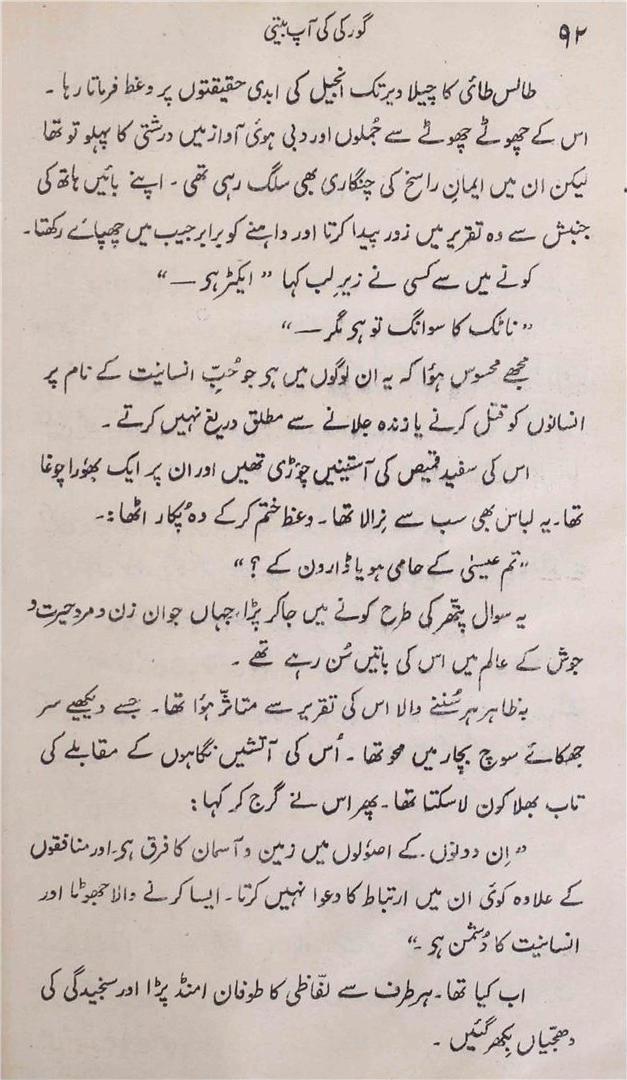 ۹۲
گورکی کی آپ بیتی
طالس طائی کا چیلا دیر تک انجیل کی ابدی حقیقتوں پر وعظ فرماتا رہا ۔
اس کے چھوٹے چھوٹے سے جُملوں اور دبی ہوئی آواز میں درشتی کا پہلو تو تھا
لیکن ان میں ایمانِ راسخ کی چنگاری بھی سلگ رہی تھی ۔ اپنے بائیں ہاتھ کی
جنبش سے وہ تقریر میں زور پیدا کرتا اور داہنے کو برابر جیب میں چھپائے رکھتا ۔
کونے میں سے کسی نے زیرِ لب کہا ” ایکٹر ہی — “
” ناٹک کا سوانگ تو ہی مگر — “
مجھے محسوس ہؤا کہ یہ ان لوگوں میں ہی جو حُبِّ انسانیت کے نام پر
انسانوں کو قتل کرنے یا زندہ جلانے سے مطلق دریغ نہیں کرتے ۔
اس کی سفید قمیص کی آستینیں چوڑی تھیں اور ان پر ایک بھورا چوغا
تھا ۔ یہ لباس بھی سب سے نِرالا تھا ۔ وعظ ختم کرکے وہ پُکار اٹھا :۔
” تم عیسیٰ کے حامی ہو یا ڈارون کے ؟ “
یہ سوال پتھر کی طرح کونے میں جاکر پڑا، جہاں جوان زن و مرد حیرت و
جوش کے عالم میں اس کی باتیں سُن رہے تھے ۔
بہ ظاہر ہر سُننے والا اس کی تقریر سے متاثّر ہؤا تھا ۔ جسے دیکھیے سر
جھکائے سوچ بچار میں محو تھا ۔ اُس کی آتشیں نگاہوں کے مقابلے کی
تاب بھلا کون لاسکتا تھا ۔ پھر اس نے گرج کر کہا :
” اِن دونوں کے اصولوں میں زمین و آسمان کا فرق ہی۔ اور منافقوں
کے علاوہ کوئی ان میں ارتباط کا دعوا نہیں کرتا ۔ ایسا کرنے والا جھوٹا اور
انسانیت کا دُشمن ہی ۔“
اب کیا تھا ۔ ہر طرف سے لفّاظی کا طوفان امنڈ پڑا اور سنجیدگی کی
دھجّیاں بِکھر گئیں ۔